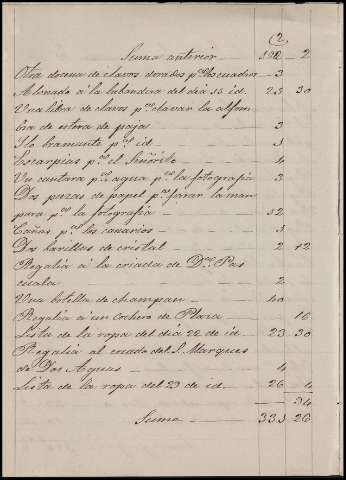 (2)
Suma anterior 192 2
Otra docena de clavos dorados pª los cuadros 3
Abonado á la labandera del dia 15 id. 23 30
Una libra de clavos pª clavar la alfom
bra de estera de paja 3
Ilo bramante pª id 1
Escarpias pª el Señorito 4
Un cantara pª agua pª la fotografia 3
Dos piezas de papel pª forrar la mam
para pª la fotografia 12
Cañas pª los canarios 1
Dos barillas de cristal 2 12
Regalia á la criada de Dª Pas
cuala 2
Una botella de champan 40
Regalia á un Cochero de Plaza 16
Lista de la ropa del dia 22 de id. 23 30
Regalia al criado del S. Marques
de Dos Aguas 4
Lista de la ropa del 29 de id. 26 4
94
Suma 331 26